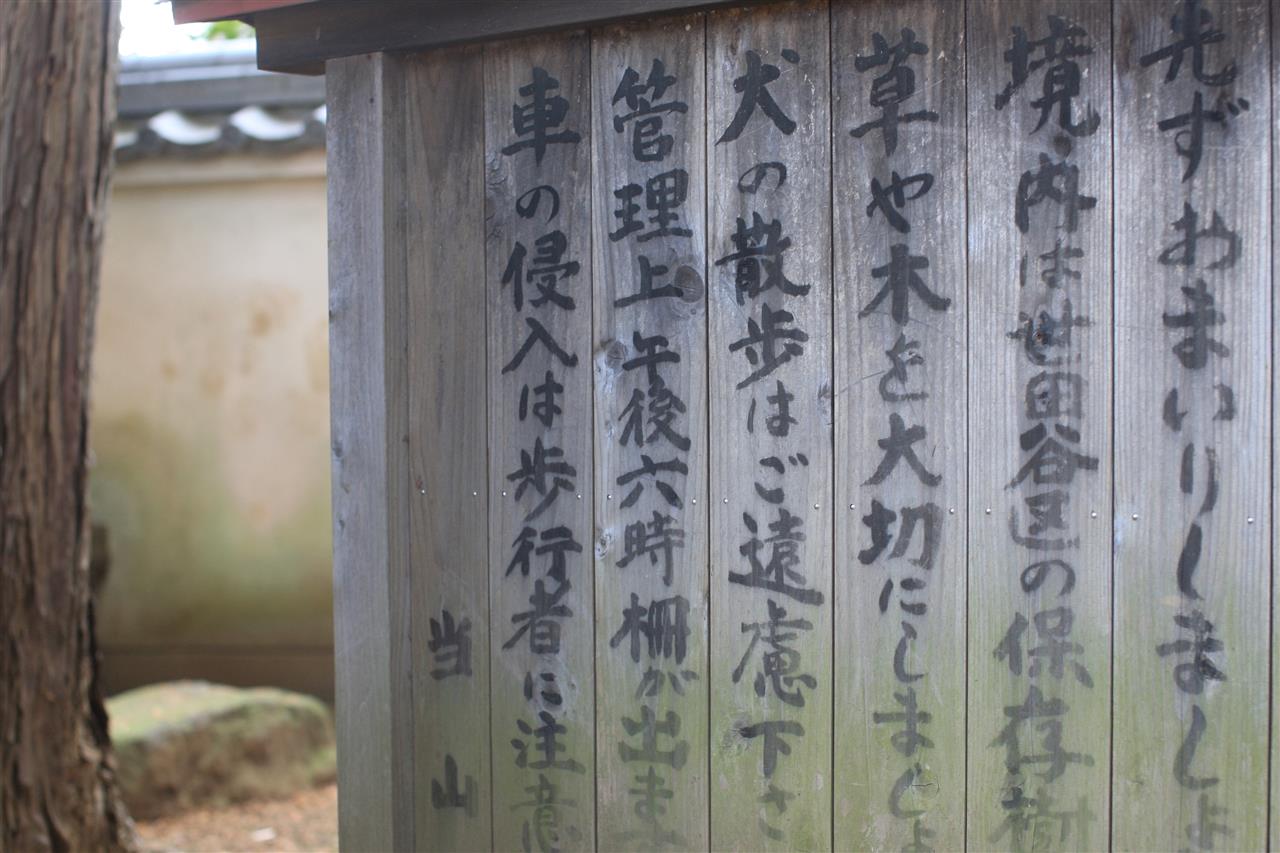 先ずおまいりしましょ
境内は世田谷区の保存樹
草や木を大切にしましょ
犬の散歩はご遠慮下さ
管理上午後六時柵が出ます
車の侵入は歩行者に注意
当山